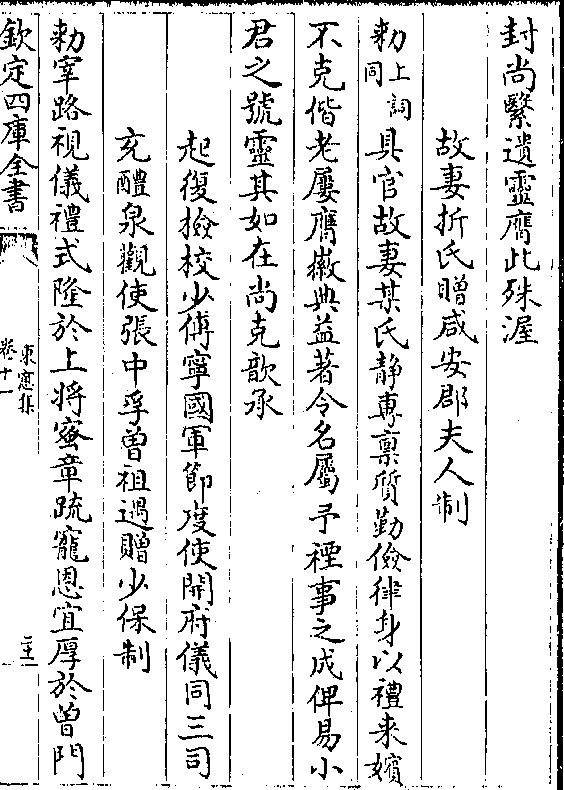 封尚繄遺靈膺此殊渥
故妻折氏贈咸安郡夫人制
勅上詞同具官故妻某氏靜專禀質勤儉律身以禮来嬪
不克偕老屢膺徽典益著令名屬予禋事之成俾易小
君之號靈其如在尚克歆承
起復檢校少傅寧國軍節度使開府儀同三司
充醴泉觀使張中孚曽祖遇贈少保制
勅宰路視儀禮式隆於上將蜜章疏寵恩宜厚於曽門
欽定四庫全書
東窻集
卷十一